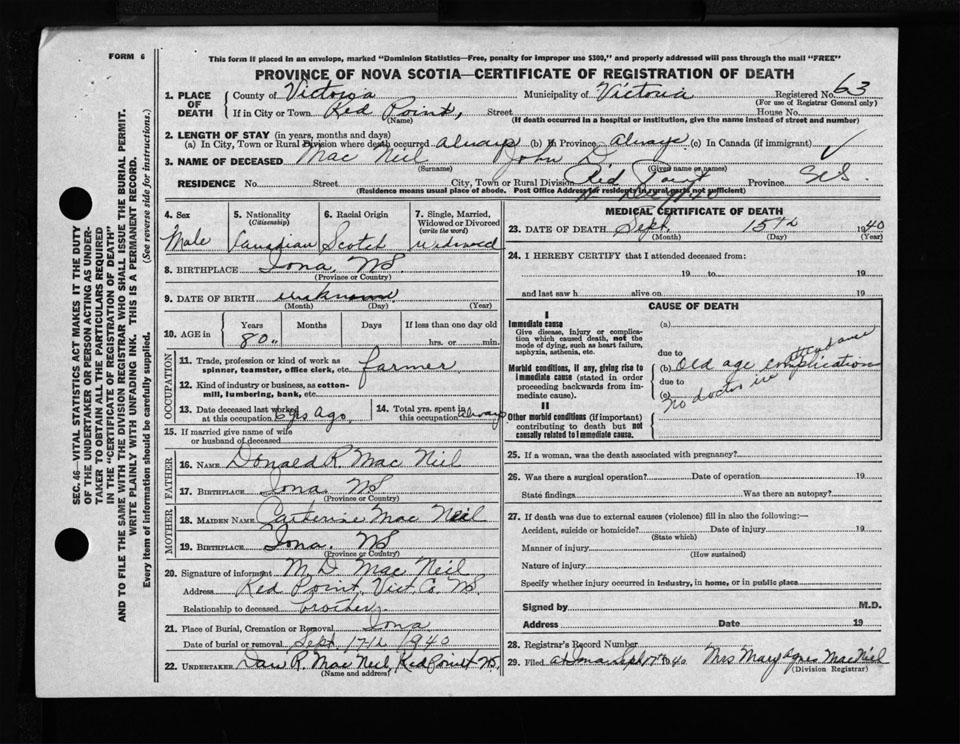 FORM 6
This form if placed in an envelope, marked "Dominion Statistics—Free, penalty for improper use $300," and properly addressed will pass through the mail "FREE"
PROVINCE OF NOVA SCOTIA—CERTIFICATE OF REGISTRATION OF DEATH
SEC. 46—VITAL STATISTICS ACT MAKES IT THE DUTY
OF THE UNDERTAKER OR PERSON ACTING AS UNDER-
TAKER TO OBTAIN ALL THE PARTICULARS REQUIRED
IN THE "CERTIFICATE OF REGISTRATION OF DEATH"
AND TO FILE THE SAME WITH THE DIVISION REGISTRAR WHO SHALL ISSUE THE BURIAL PERMIT.
WRITE PLAINLY WITH UNFADING INK. THIS IS A PERMANENT RECORD.
Every item of information should be carefully supplied. (See reverse side for instructions.)
1. PLACE OF DEATH County of Victoria Municipality of Victoria Registered No. 63
(For use of Registrar General only)
If in City or Town Red Point, Street House No.
(Name) (If death occurred in a hospital or institution, give the name instead of street and number)
2. LENGTH OF STAY (in years, months and days)
(a) In City, Town or Rural Division where death occurred always (b) In Province always (c) In Canada (if immigrant)
3. NAME OF DECEASED Mac Neil John D.
(Surname) (Given name or names)
RESIDENCE No. Street City, Town or Rural Division Red Point Province N.S.
(Residence means usual place of abode. Post Office Address for residents in rural parts not sufficient)
4. Sex
Male
5. Nationality
(Citizenship)
Canadian
6. Racial Origin
Scotch
7. Single, Married, Widowed or Divorced
(write the word)
widowed
8. BIRTHPLACE Iona, NS
(Province or Country)
9. DATE OF BIRTH unknown
(Month) (Day) (Year)
10. AGE in Years Months Days If less than one day old
80 hrs. or min.
OCCUPATION
11. Trade, profession or kind of work as spinner, teamster, office clerk, etc. farmer
12. Kind of industry or business, as cotton-mill, lumbering, bank, etc.
13. Date deceased last worked at this occupation 6 yrs ago. 14. Total yrs. spent in this occupation always
15. If married give name of wife or husband of deceased
FATHER
16. NAME Donald R. Mac Neil
17. BIRTHPLACE Iona, NS
(Province or Country)
MOTHER
18. MAIDEN NAME Catherine Mac Neil
19. BIRTHPLACE Iona, NS
(Province or Country)
20. Signature of informant M. D. Mac Neil
Address Red Point, Vict. Co. NS
Relationship to deceased brother,
21. Place of Burial, Cremation or Removal Iona
Date of burial or removal Sept. 17th 1940
22. UNDERTAKER Dan R. Mac Neil, Red Point NS
(Name and address)
MEDICAL CERTIFICATE OF DEATH
23. DATE OF DEATH Sept. 15th 1940
(Month) (Day) (Year)
24. I HEREBY CERTIFY that I attended deceased from:
19 to 19
and last saw h alive on 19
CAUSE OF DEATH
I
Immediate cause (a)
Give disease, injury or complication which caused death, not the mode of dying, such as heart failure, asphyxia, asthenia, etc.
due to
Morbid conditions, if any, giving rise to immediate cause (stated in order proceeding backwards from immediate cause).
(b) Old age complication
due to
(c) No doctor in attendance
II
Other morbid conditions (if important) contributing to death but not causally related to immediate cause.
25. If a woman, was the death associated with pregnancy?
26. Was there a surgical operation? Date of operation 19
State findings Was there an autopsy?
27. If death was due to external causes (violence) fill in also the following:—
Accident, suicide or homicide? Date of injury 19
(State which)
Manner of injury
(How sustained)
Nature of injury
Specify whether injury occurred in industry, in home, or in public place
Signed by M.D.
Address Date 19
28. Registrar's Record Number
29. Filed at Iona Sept 17th 1940 Mrs Mary Agnes MacNeil
(Division Registrar)